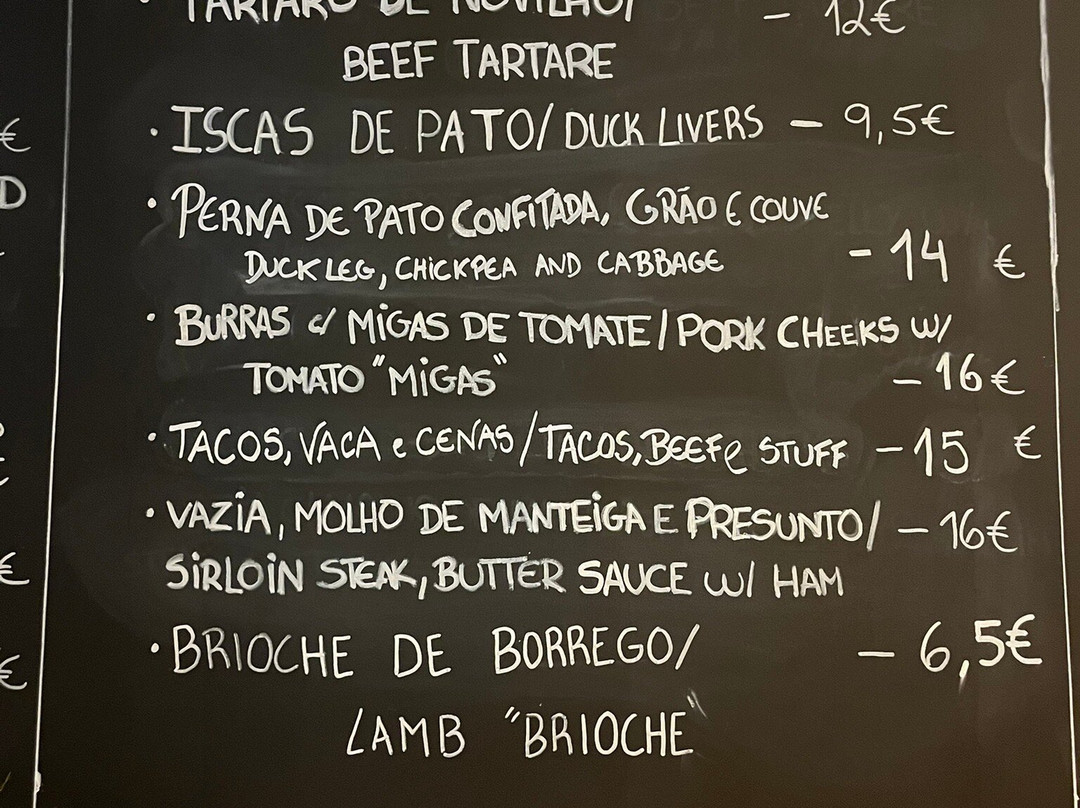 · TARTARO DE NOVILHO/ - 12€
BEEF TARTARE
· ISCAS DE PATO/DUCK LIVERS - 9,5€
· PERNA DE PATO CONFITADA, GRÃO E COUVE
DUCK LEG, CHICKPEA AND CABBAGE - 14 €
· BURRAS c/ MIGAS DE TOMATE/PORK CHEEKS W/
TOMATO "MIGAS" - 16€
· TACOS, VACA e CENAS/TACOS, BEEF e STUFF - 15 €
· VAZIA, MOLHO DE MANTEIGA E PRESUNTO/ - 16€
SIRLOIN STEAK, BUTTER SAUCE W/ HAM
· BRIOCHE DE BORREGO/ - 6,5€
LAMB "BRIOCHE"
€
D
€
€